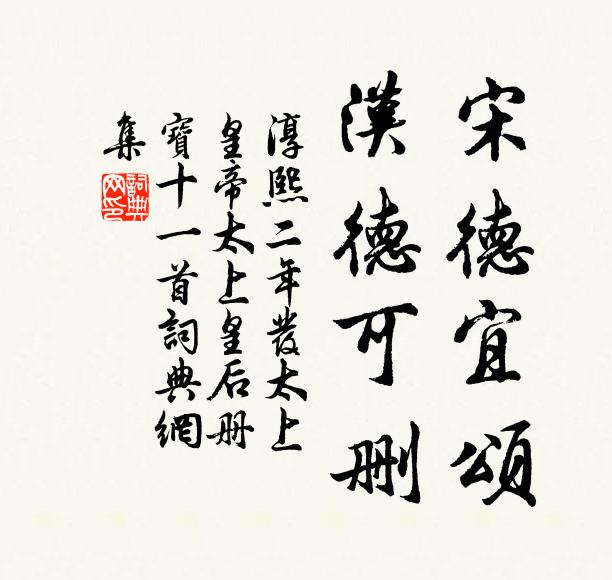 宋德宜頌
漢德可删
淳熙二年發太上
皇帝太上皇后册
寶十一首詞典網
集
詞典
网印